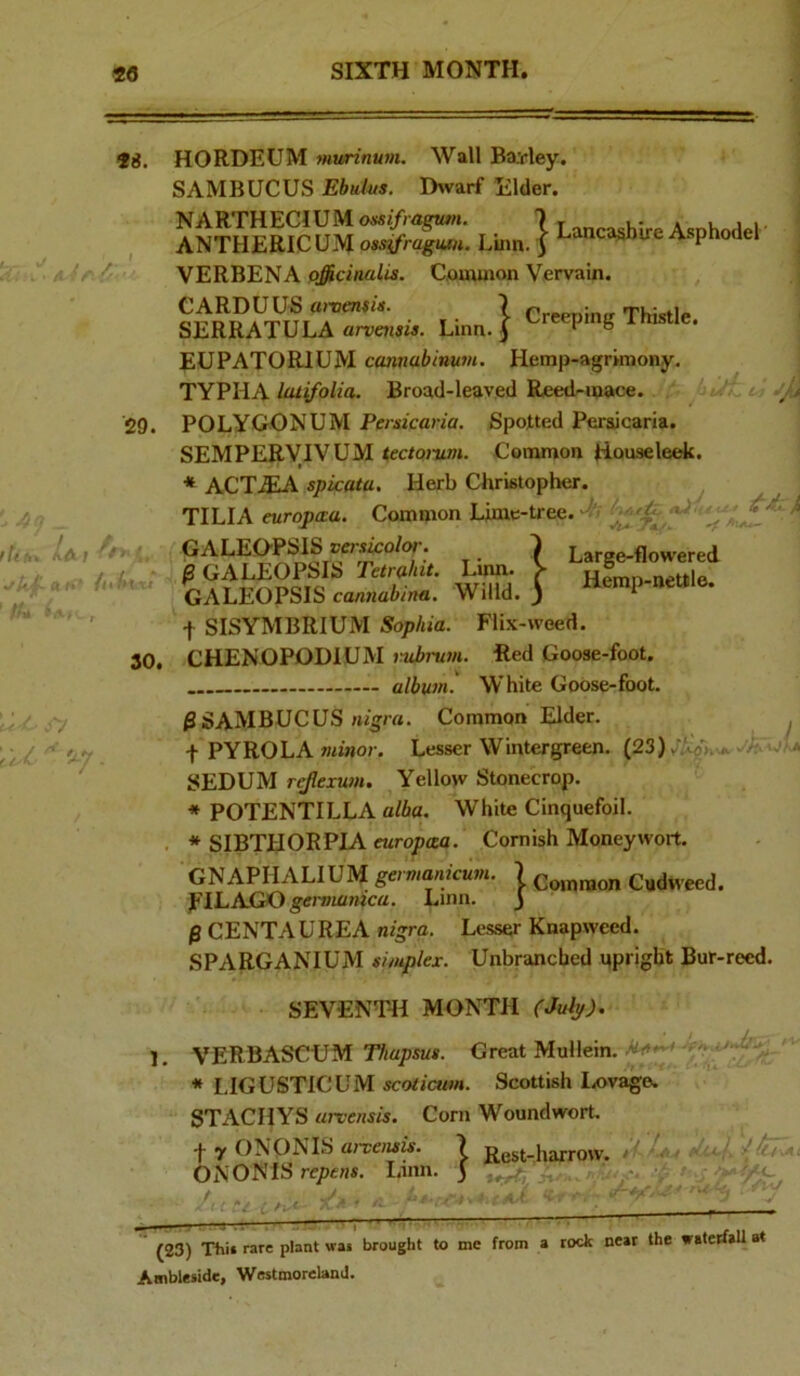 26 SIXTH MONTH.
28. HORDEUM murinum. Wall Barley.
SAMBUCUS Ebulus. Dwarf Elder.
NARTHECIUM ossifragum. } Lancashire Asphodel
ANTHERICUM ossifragum. Linn.
VERBENA officinalis. Common Vervain.
CARDUUS arvensis. } Creeping Thistle.
SERRATULA arvensis. Linn.
EUPATORIUM cannabinum. Hemp-agrimony.
TYPHA latifolia. Broad-leaved Reed-mace.
29. POLYGONUM Persicaria. Spotted Persicaria.
SEMPERVIVUM tectorum. Common Houseleek.
* ACTÆA spicata. Herb Christopher.
TILIA europæa. Common Lime-tree.
GALEOPSIS versicolor. } Large-flowered
β GALEOPSIS Tetrahit. Linn. Hemp-nettle.
GALEOPSIS cannabina. Willd.
† SISYMBRIUM Sophia. Flix-weed.
30. CHENOPODIUM rubrum. Red Goose-foot.
—— album. White Goose-foot.
β SAMBUCUS nigra. Common Elder.
† PYROLA minor. Lesser Wintergreen. (23)
SEDUM reflexum. Yellow Stonecrop.
* POTENTILLA alba. White Cinquefoil.
* SIBTHORPIA europæa. Cornish Moneywort.
GNAPHALIUM germanicum. } Common Cudweed.
FILAGO germanica. Linn.
β CENTAUREA nigra. Lesser Knapweed.
SPARGANIUM simplex. Unbranched upright Bur-reed.
SEVENTH MONTH (July).
1. VERBASCUM Thapsus. Great Mullein.
* LIGUSTICUM scoticum. Scottish Lovage.
STACHYS arvensis. Corn Woundwort.
† γ ONONIS arvensis. } Rest-harrow.
ONONIS repens. Linn.
(23) This rare plant was brought to me from a rock near the waterfall at
Ambleside, Westmoreland.